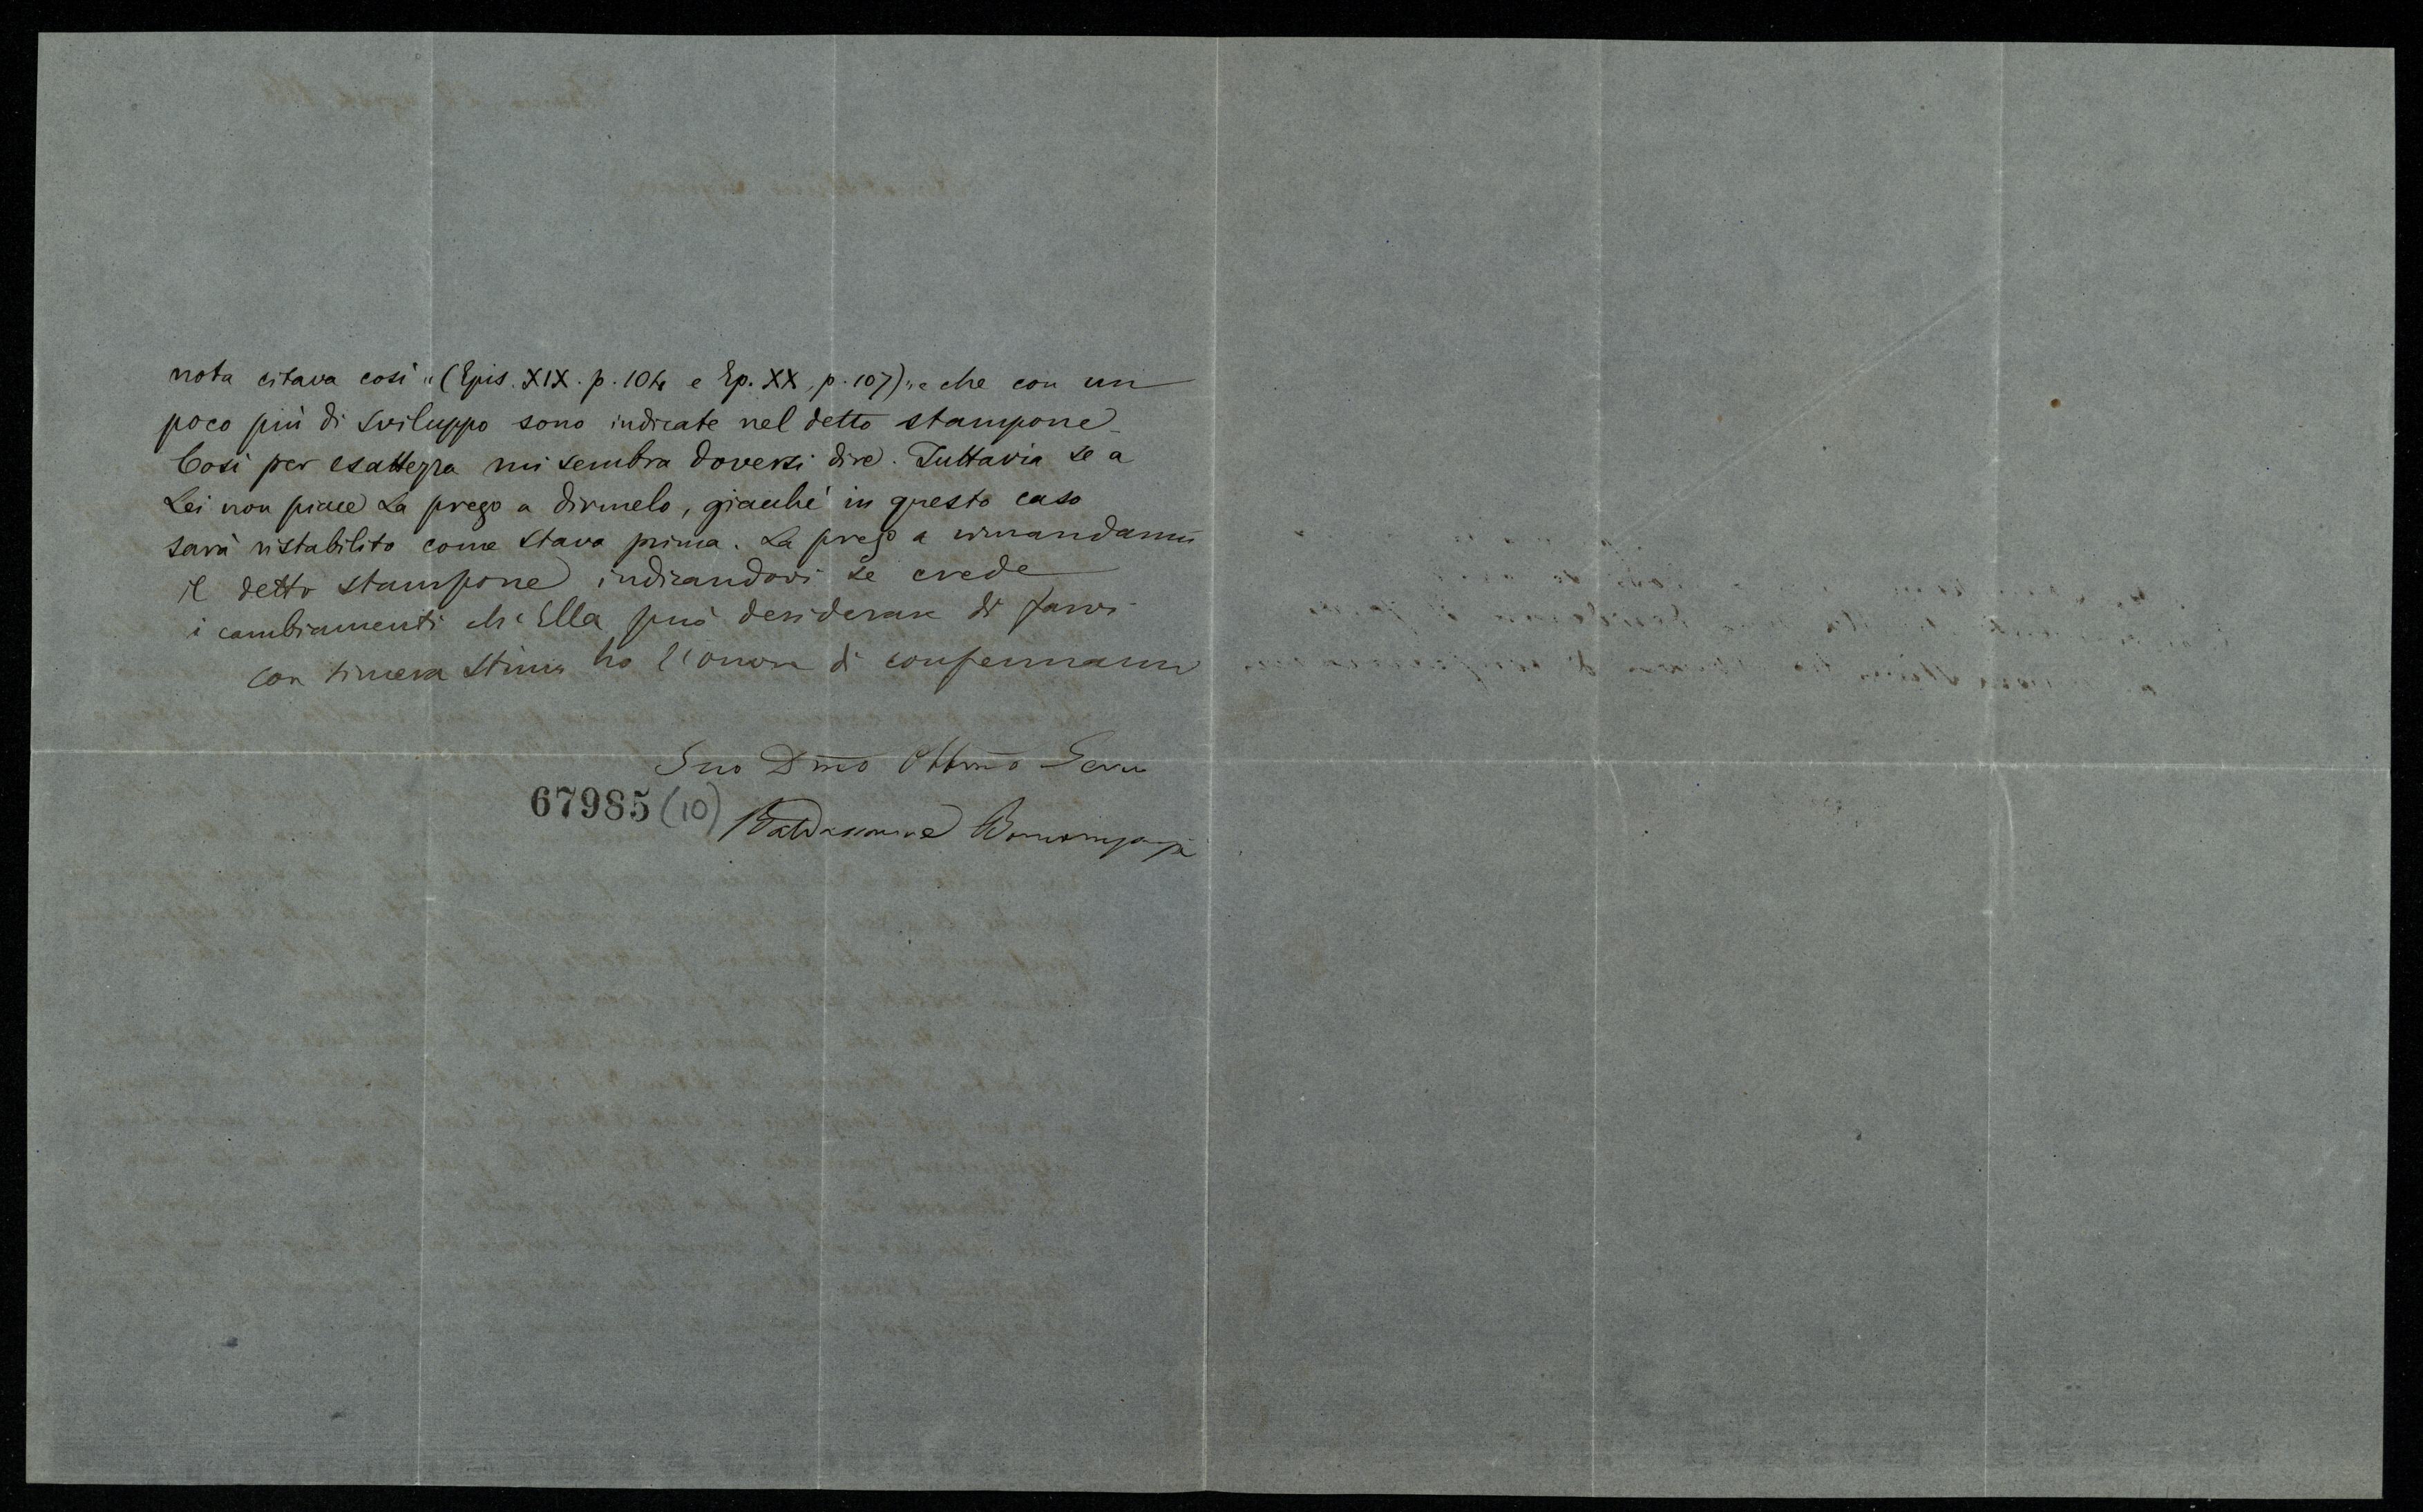 nota citava così „(Epis. XIX. p. 104 e Ep. XX, p. 107)„ e che con un
poco più di sviluppo sono indicate nel detto stampone_
Così per esattezza mi sembra doversi dire. Tuttavia se a
Lei non piace La prego a dirmelo, giacché in questo caso
sarà ristabilito come stava prima. La prego a rimandarmi
il detto stampone indicandovi se crede
i cambiamenti ch'Ella può desiderare di farvi
Con sincera stima ho l'onore di confermarmi
Suo Dmo Obbmo Servo
67985 (10)
Baldassarre Boncompagni